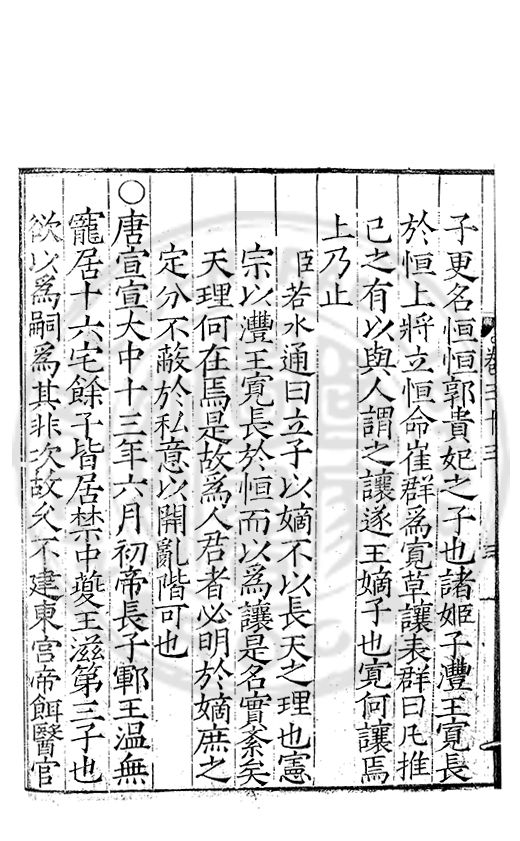 卷三十三
三
子更名恒恒郭貴妃之子也諸姬子灃王寛長
於恒上將立恒命崔群爲寛草讓表群曰凡推
己之有以與人謂之讓遂王嫡子也寛何讓焉
上乃止
臣若水通曰立子以嫡不以長天之理也憲
宗以灃王寛長於恒而以爲讓是名實紊矣
天理何在焉是故爲人君者必明於嫡庶之
定分不蔽於私意以開亂階可也
○唐宣宣大中十三年六月初帝長子鄆王温無
寵居十六宅餘子皆居禁中夔王滋第三子也
欲以爲嗣爲其非次故乆不建東宫帝餌醫官